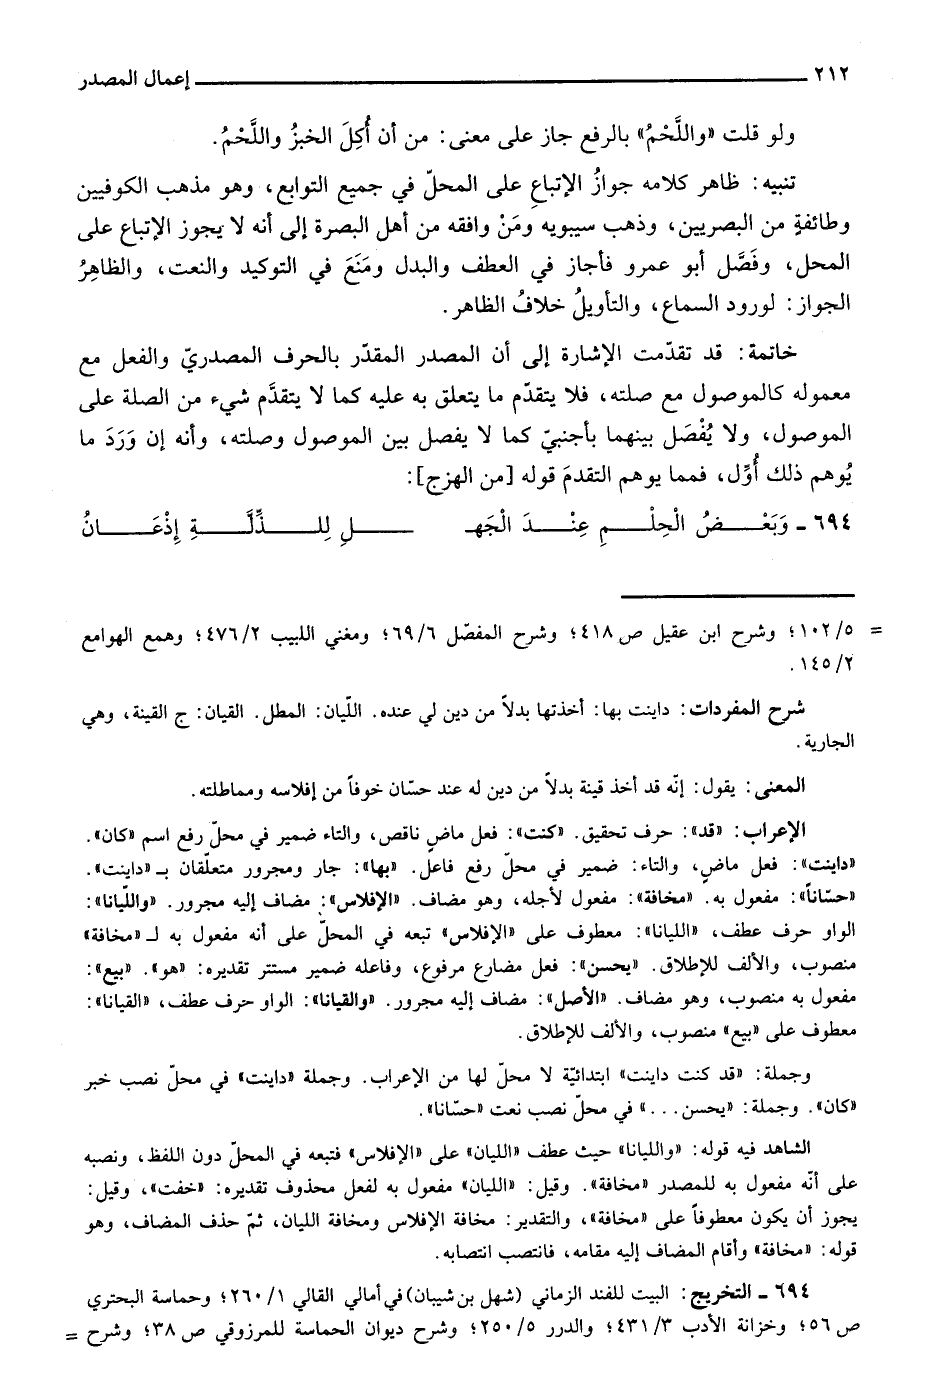 ٢١٢ إعمال المصدر
ولو قلت «واللَّحْمُ» بالرفع جاز على معنى: من أن أُكِلَ الخبزُ واللَّحْمُ.
تنبيه: ظاهر كلامه جوازُ الإتباعِ على المحلّ في جميع التوابع، وهو مذهب الكوفيين
وطائفةٍ من البصريين، وذهب سيبويه ومَنْ وافقه من أهل البصرة إلى أنه لا يجوز الإتباع على
المحل، وفَصَّل أبو عمرو فأجاز في العطف والبدل ومَنَعَ في التوكيد والنعت، والظاهِرُ
الجواز: لورود السماع، والتأويلُ خلافُ الظاهر.
خاتمة: قد تقدّمت الإشارة إلى أن المصدر المقدّر بالحرف المصدريّ والفعل مع
معموله كالموصول مع صلته، فلا يتقدّم ما يتعلق به عليه كما لا يتقدَّم شيء من الصلة على
الموصول، ولا يُفْصَل بينهما بأجنبيّ كما لا يفصل بين الموصول وصلته، وأنه إن وَرَدَ ما
يُوهم ذلك أُوِّل، فمما يوهم التقدمَ قوله [من الهزج]:
٦٩٤ ـ وَبَعْـضُ الْحِلْـمِ عِنْـدَ الْجَهـ ـلِ لِلـذِّلَّـةِ إِذْعَـانُ
= ١٠٢/٥؛ وشرح ابن عقيل ص٤١٨؛ وشرح المفصّل ٦٩/٦؛ ومغني اللبيب ٤٧٦/٢؛ وهمع الهوامع
١٤٥/٢.
شرح المفردات: داينت بها: أخذتها بدلاً من دين لي عنده. اللّيان: المطل. القيان: ج القينة، وهي
الجارية.
المعنى: يقول: إنّه قد أخذ قينة بدلاً من دين له عند حسّان خوفاً من إفلاسه ومماطلته.
الإعراب: «قد»: حرف تحقيق. «كنت»: فعل ماضٍ ناقص، والتاء ضمير في محلّ رفع اسم «كان».
«داينت»: فعل ماضٍ، والتاء: ضمير في محلّ رفع فاعل. «بها»: جار ومجرور متعلّقان بـ«داينت».
«حسّاناً»: مفعول به. «مخافة»: مفعول لأجله، وهو مضاف. «الإفلاس»: مضاف إليه مجرور. «واللّيانا»:
الواو حرف عطف، «الليانا»: معطوف على «الإفلاس» تبعه في المحلّ على أنه مفعول به لـ«مخافة»
منصوب، والألف للإطلاق. «يحسن»: فعل مضارع مرفوع، وفاعله ضمير مستتر تقديره: «هو». «بيع»:
مفعول به منصوب، وهو مضاف. «الأصل»: مضاف إليه مجرور. «والقيانا»: الواو حرف عطف، «القيانا»:
معطوف على «بيع» منصوب، والألف للإطلاق.
وجملة: «قد كنت داينت» ابتدائيّة لا محلّ لها من الإعراب. وجملة «داينت» في محلّ نصب خبر
«كان». وجملة: «يحسن...» في محلّ نصب نعت «حسّانا».
الشاهد فيه قوله: «والليانا» حيث عطف «الليان» على «الإفلاس» فتبعه في المحلّ دون اللفظ، ونصبه
على أنّه مفعول به للمصدر «مخافة». وقيل: «الليان» مفعول به لفعل محذوف تقديره: «خفت»، وقيل:
يجوز أن يكون معطوفاً على «مخافة»، والتقدير: مخافة الإفلاس ومخافة الليان، ثمّ حذف المضاف، وهو
قوله: «مخافة» وأقام المضاف إليه مقامه، فانتصب انتصابه.
٦٩٤ ـ التخريج: البيت للفند الزماني (شهل بن شيبان) في أمالي القالي ٢٦٠/١؛ وحماسة البحتري
ص٥٦؛ وخزانة الأدب ٤٣١/٣؛ والدرر ٢٥٠/٥؛ وشرح ديوان الحماسة للمرزوقي ص٣٨؛ وشرح =